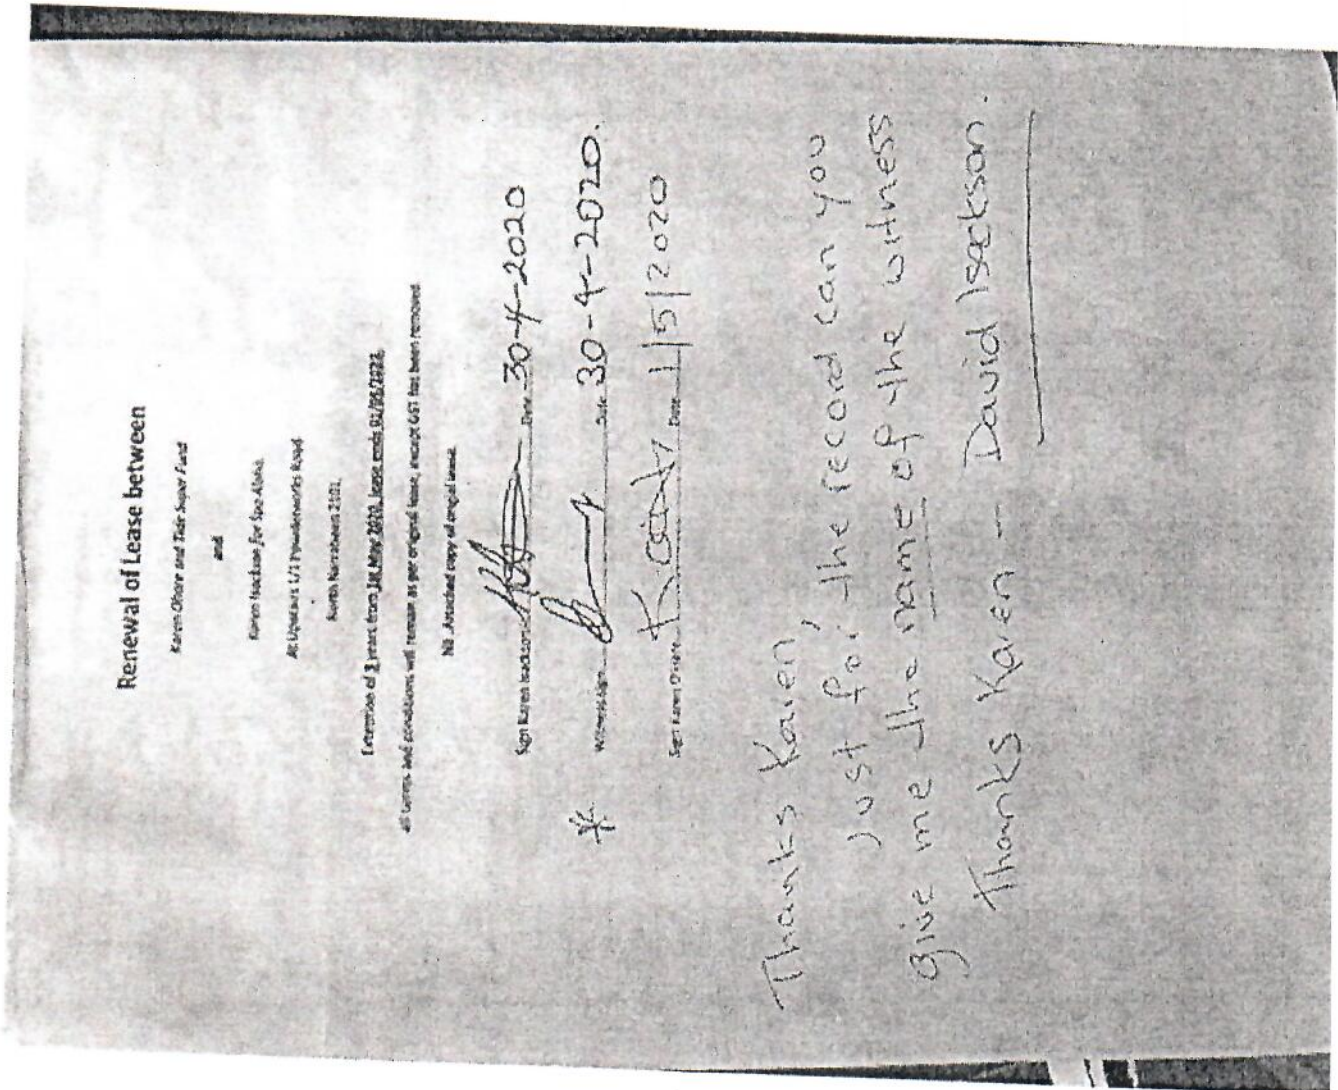 Renewal of Lease between
Karen Ohare and Tade Super Fund
and
Karen Isackson for Spa Alpha.
At: Upstairs 1/1 Powderworks Road
North Narrabeen 2101.
Extention of years from 1st May 2020, lease ends
all terms and conditions will remain as per original lease, except GST has been removed.
NB. Attached copy of lease.
Sign Karen Isackson Date 30-4-2020
* Witness sign Date 30-4-2020.
Sign Karen O'Hare Date 1/5/2020
Thanks Karen,
Just for the record can you
give me the name of the witness
Thanks Karen — David Isackson.